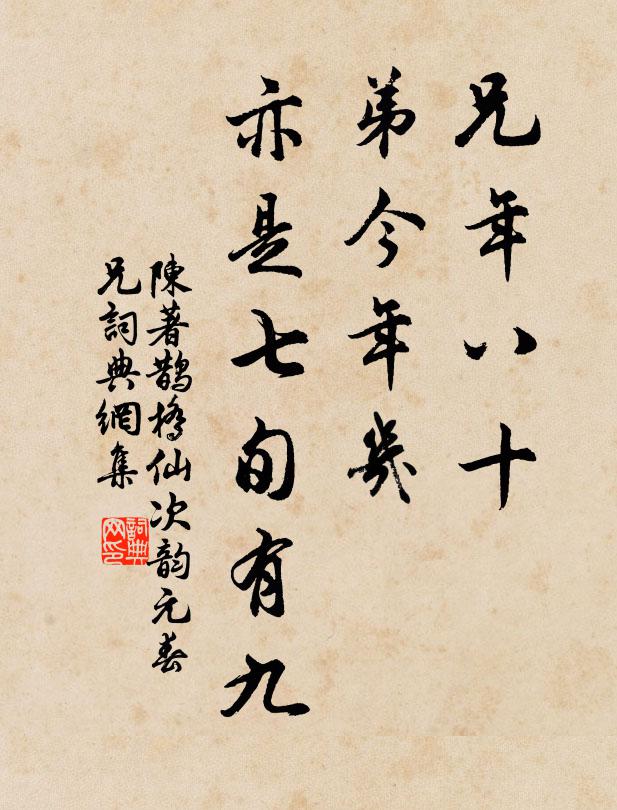 兄年八十
弟今年幾
亦是七旬有九
陳著鵲橋仙次韵元春
兄詞典網集
詞典网印